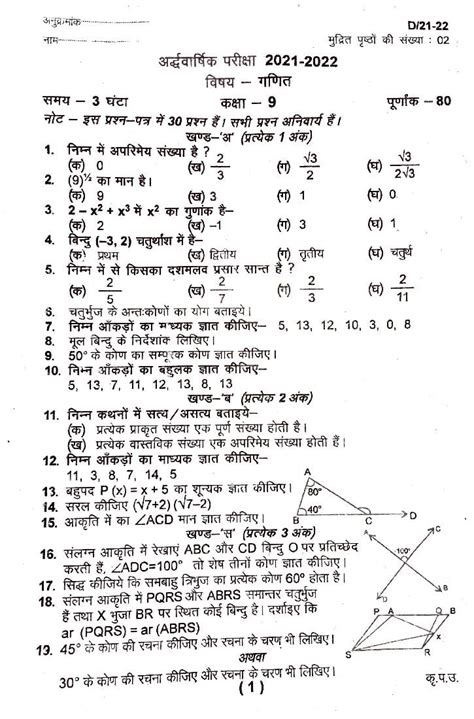 अनुक्रमांक
D/21-22
नाम
मुद्रित पृष्ठों की संख्या : 02
अर्द्धवार्षिक परीक्षा 2021-2022
विषय – गणित
समय – 3 घंटा कक्षा – 9 पूर्णांक – 80
नोट – इस प्रश्न–पत्र में 30 प्रश्न हैं। सभी प्रश्न अनिवार्य हैं।
खण्ड–'अ' (प्रत्येक 1 अंक)
1. निम्न में अपरिमेय संख्या है ?
(क) 0 (ख) 2/3 (ग) √3/2 (घ) √3/2√3
2. (9)^½ का मान है।
(क) 9 (ख) 3 (ग) 1 (घ) 0
3. 2 – x² + x³ में x² का गुणांक है–
(क) 2 (ख) –1 (ग) 3 (घ) 1
4. बिन्दु (–3, 2) चतुर्थांश में है–
(क) प्रथम (ख) द्वितीय (ग) तृतीय (घ) चतुर्थ
5. निम्न में से किसका दशमलव प्रसार सान्त है ?
(क) 2/5 (ख) 2/7 (ग) 2/3 (घ) 2/11
6. चतुर्भुज के अन्तःकोणों का योग बताइये।
7. निम्न आँकड़ों का माध्यक ज्ञात कीजिए– 5, 13, 12, 10, 3, 0, 8
8. मूल बिन्दु के निर्देशांक लिखिए।
9. 50° के कोण का सम्पूरक कोण ज्ञात कीजिए।
10. निम्न आँकड़ों का बहुलक ज्ञात कीजिए।
5, 13, 7, 11, 12, 13, 8, 13
खण्ड–'ब' (प्रत्येक 2 अंक)
11. निम्न कथनों में सत्य/असत्य बताइये–
(क) प्रत्येक प्राकृत संख्या एक पूर्ण संख्या होती है।
(ख) प्रत्येक वास्तविक संख्या एक अपरिमेय संख्या होती हैं।
12. निम्न आँकड़ों का माध्यक ज्ञात कीजिए–
11, 3, 8, 7, 14, 5
13. बहुपद P (x) = x + 5 का शून्यक ज्ञात कीजिए।
14. सरल कीजिए (√7+2) (√7–2)
15. आकृति में का ∠ACD मान ज्ञात कीजिए।
A
80°
40°
B C D
खण्ड–'स' (प्रत्येक 3 अंक)
16. संलग्न आकृति में रेखाएं ABC और CD बिन्दु O पर प्रतिच्छेद
करती हैं, ∠ADC=100° तो शेष तीनों कोण ज्ञात कीजिए।
A C
100°
D B
17. सिद्ध कीजिये कि समबाहु त्रिभुज का प्रत्येक कोण 60° होता है।
18. संलग्न आकृति में PQRS और ABRS समान्तर चतुर्भुज
हैं तथा X भुजा BR पर स्थित कोई बिन्दु है। दर्शाइए कि
ar (PQRS) = ar (ABRS)
P A Q B
x
S R
19. 45° के कोण की रचना कीजिए और रचना के चरण भी लिखिए।
अथवा
30° के कोण की रचना कीजिए और रचना के चरण भी लिखिए।
( 1 )
कृ.प.उ.